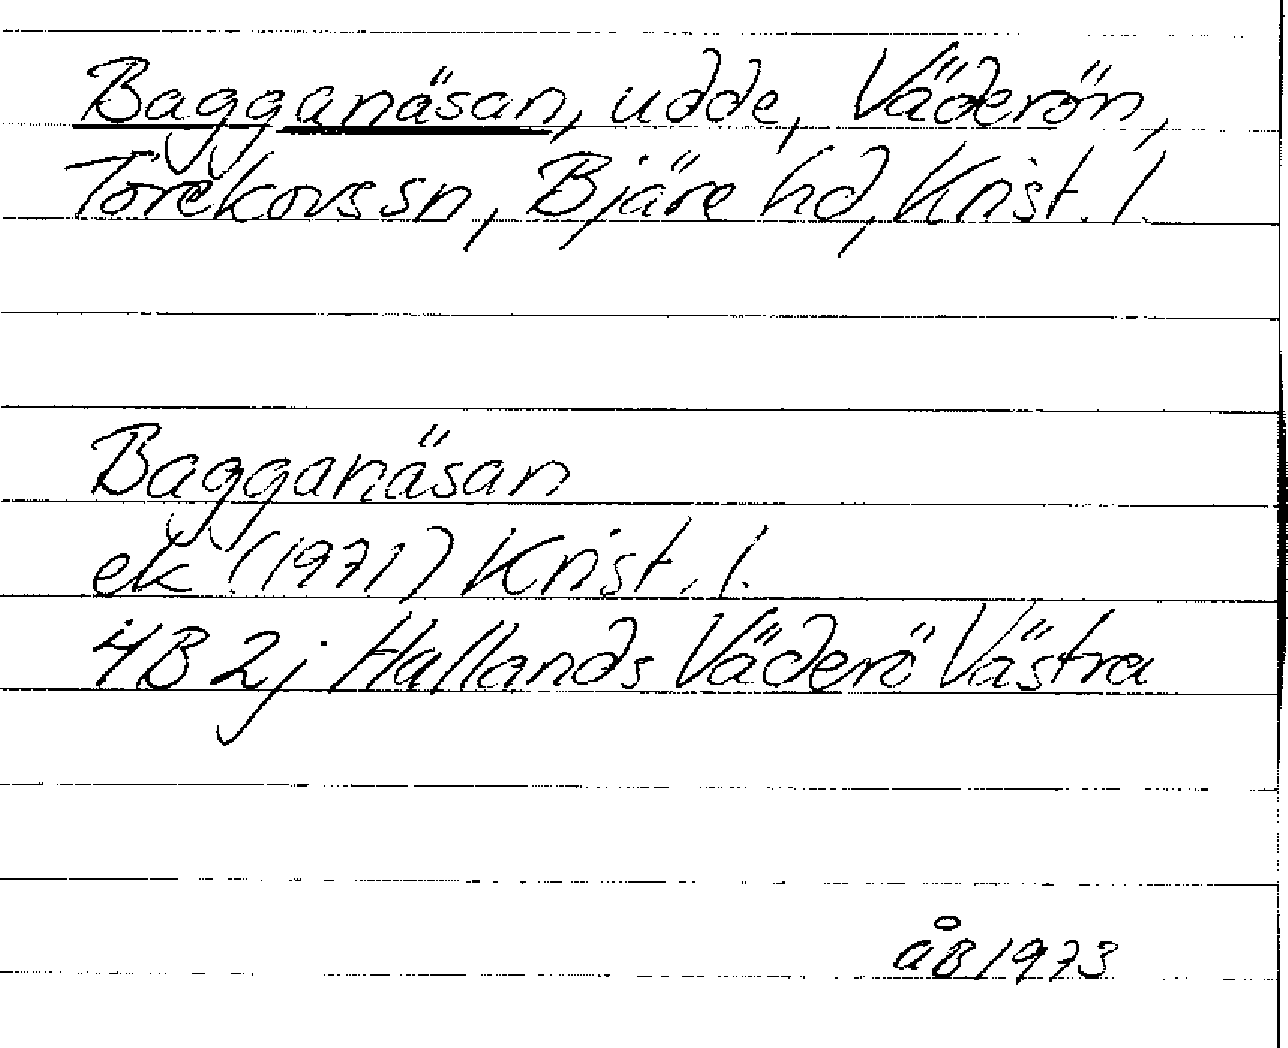 Bagganäsan, udde, Väderön,
Torekovs sn, Bjäre hd, Krist. l.
Bagganäsan
ek (1971) Krist. l.
4B 2j Hallands Väderö Västra
åB 1973